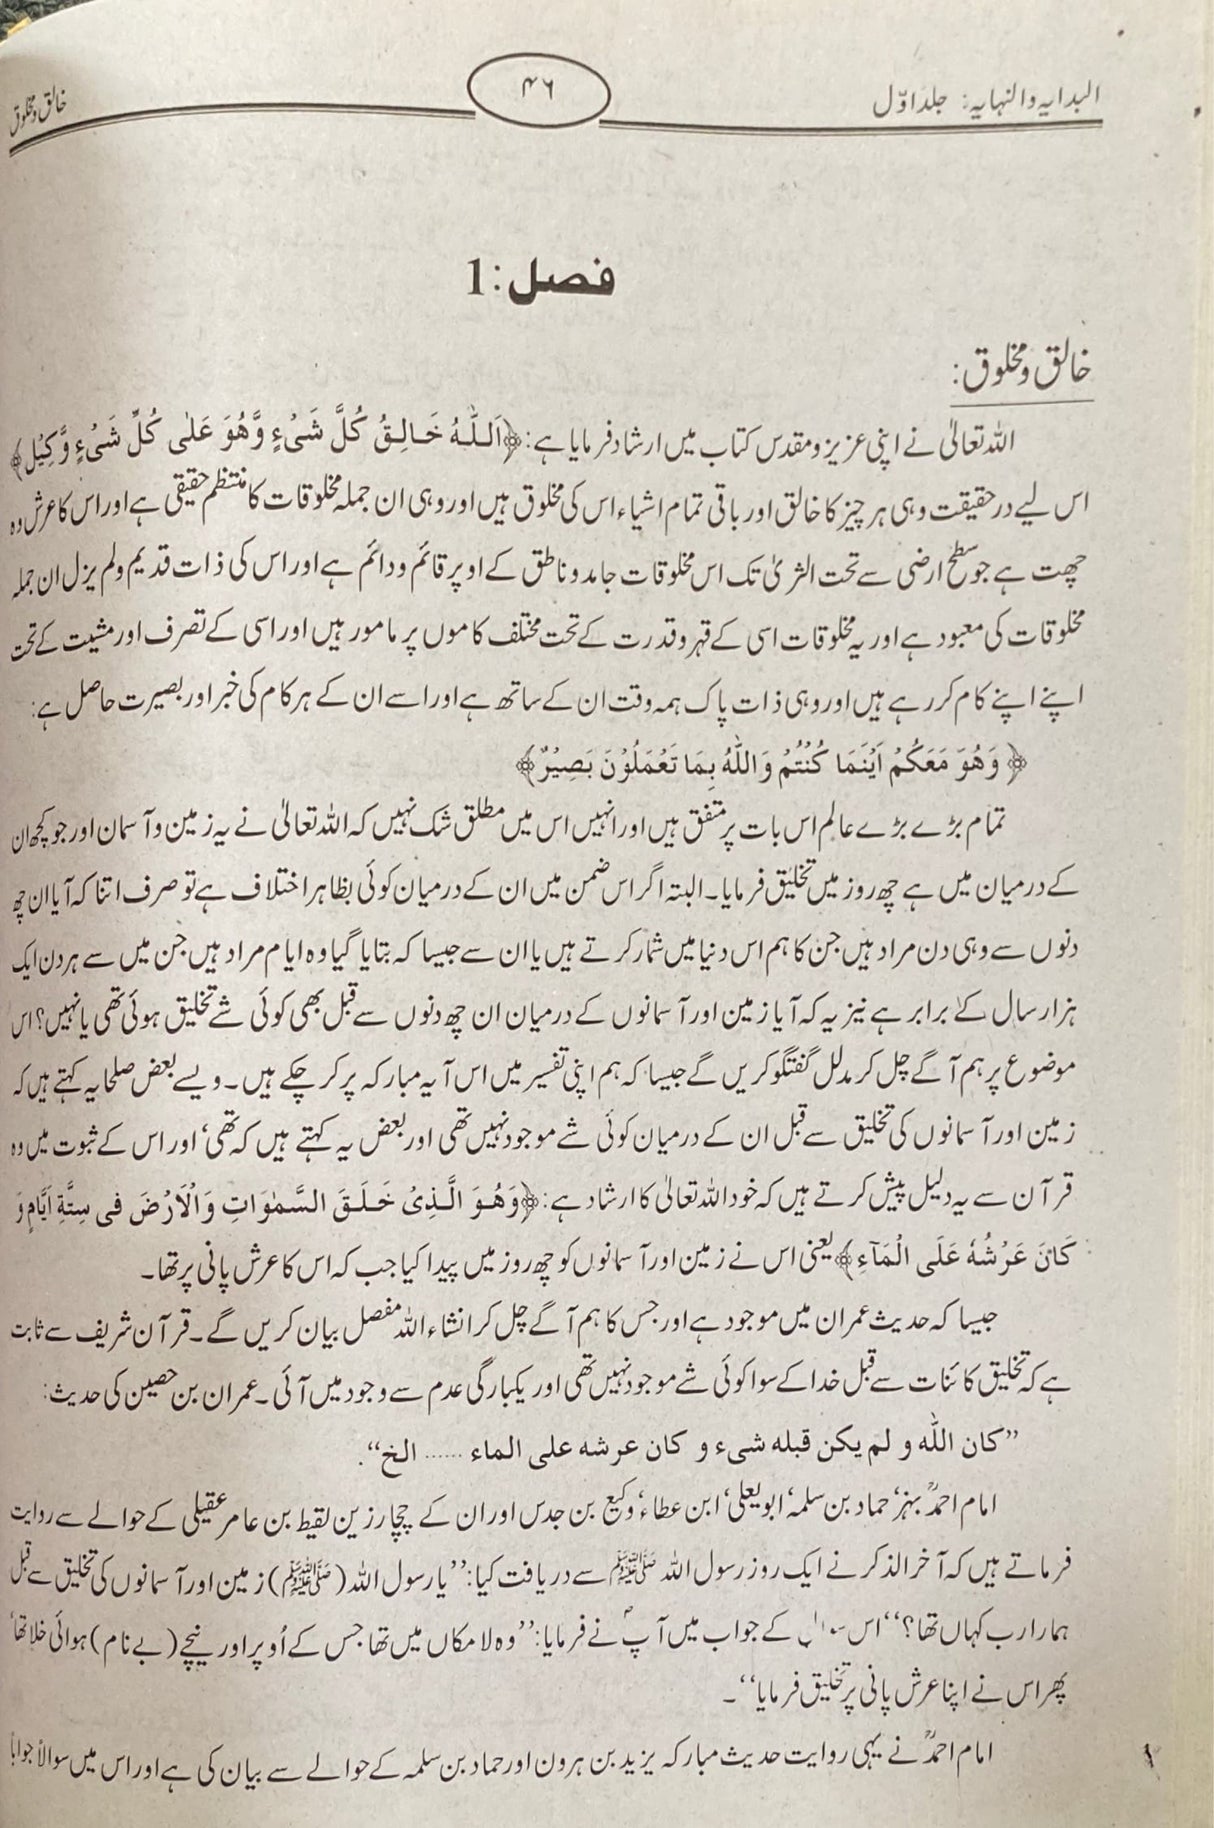 البدایہ والنہایہ: جلد اوّل
۴۶
خالق و مخلوق
فصل :1
خالق و مخلوق:
اللہ تعالیٰ نے اپنی عزیز و مقدس کتاب میں ارشاد فرمایا ہے: ﴿اَللّٰهُ خَالِقُ كُلَّ شَیْءٍ وَّهُوَ عَلٰی كُلِّ شَیْءٍ وَّكِیْل﴾
اس لیے در حقیقت وہی ہر چیز کا خالق اور باقی تمام اشیاء اس کی مخلوق ہیں اور وہی ان جملہ مخلوقات کا منتظم حقیقی ہے اور اس کا عرش وہ
چھت ہے جو سطح ارضی سے تحت الثریٰ تک اس مخلوقات جامد و ناطق کے اوپر قائم و دائم ہے اور اس کی ذات قدیم ولم یزل ان جملہ
مخلوقات کی معبود ہے اور یہ مخلوقات اسی کے قہر و قدرت کے تحت مختلف کاموں پر مامور ہیں اور اسی کے تصرف اور مشیت کے تحت
اپنے اپنے کام کر رہے ہیں اور وہی ذات پاک ہمہ وقت ان کے ساتھ ہے اور اسے ان کے ہر کام کی خبر اور بصیرت حاصل ہے:
﴿ وَهُوَ مَعَكُمْ اَیْنَمَا كُنْتُمْ وَاللّٰهُ بِمَا تَعْمَلُوْنَ بَصِیْرٌ﴾
تمام بڑے بڑے عالم اس بات پر متفق ہیں اور انہیں اس میں مطلق شک نہیں کہ اللہ تعالیٰ نے یہ زمین و آسمان اور جو کچھ ان
کے درمیان میں ہے چھ روز میں تخلیق فرمایا۔ البتہ اگر اس ضمن میں ان کے درمیان کوئی بظاہر اختلاف ہے تو صرف اتنا کہ آیا ان چھ
دنوں سے وہی دن مراد ہیں جن کا ہم اس دنیا میں شمار کرتے ہیں یا ان سے جیسا کہ بتایا گیا وہ ایام مراد ہیں جن میں سے ہر دن ایک
ہزار سال کے برابر ہے نیز یہ کہ آیا زمین اور آسمانوں کے درمیان ان چھ دنوں سے قبل بھی کوئی شے تخلیق ہوئی تھی یا نہیں؟ اس
موضوع پر ہم آگے چل کر مدلل گفتگو کریں گے جیسا کہ ہم اپنی تفسیر میں اس آیہ مبارکہ پر کر چکے ہیں۔ ویسے بعض صلحا یہ کہتے ہیں کہ
زمین اور آسمانوں کی تخلیق سے قبل ان کے درمیان کوئی شے موجود نہیں تھی اور بعض یہ کہتے ہیں کہ تھی، اور اس کے ثبوت میں وہ
قرآن سے یہ دلیل پیش کرتے ہیں کہ خود اللہ تعالیٰ کا ارشاد ہے: ﴿وَهُوَ الَّذِیْ خَلَقَ السَّمٰوَاتِ وَالْاَرْضَ فی سِتَّةِ اَیَّامٍ وَ
كَانَ عَرْشُهٗ عَلَی الْمَآءِ﴾ یعنی اس نے زمین اور آسمانوں کو چھ روز میں پیدا کیا جب کہ اس کا عرش پانی پر تھا۔
جیسا کہ حدیث عمران میں موجود ہے اور جس کا ہم آگے چل کر انشاء اللہ مفصل بیان کریں گے۔ قرآن شریف سے ثابت
ہے کہ تخلیق کائنات سے قبل خدا کے سوا کوئی شے موجود نہیں تھی اور یکبارگی عدم سے وجود میں آئی۔ عمران بن حصین کی حدیث:
’’كان الله و لم یكن قبله شیء و كان عرشه علی الماء ...... الخ‘‘.
امام احمدؒ بہز، حماد بن سلمہ، ابو یعلی، ابن عطاء، وکیع بن جدس اور ان کے چچا رزین لقیط بن عامر عقیلی کے حوالے سے روایت
فرماتے ہیں کہ آخر الذکر نے ایک روز رسول اللہ ﷺ سے دریافت کیا: ’’یا رسول اللہ (ﷺ) زمین اور آسمانوں کی تخلیق سے قبل
ہمارا رب کہاں تھا؟‘‘ اس کے جواب میں آپؐ نے فرمایا: ’’وہ لا مکاں میں تھا جس کے اُوپر اور نیچے (بے نام) ہوائی خلا تھا،
پھر اس نے اپنا عرش پانی پر تخلیق فرمایا‘‘۔
امام احمدؒ نے یہی روایت حدیث مبارکہ یزید بن ہرون اور حماد بن سلمہ کے حوالے سے بیان کی ہے اور اس میں سوالاً جواباً